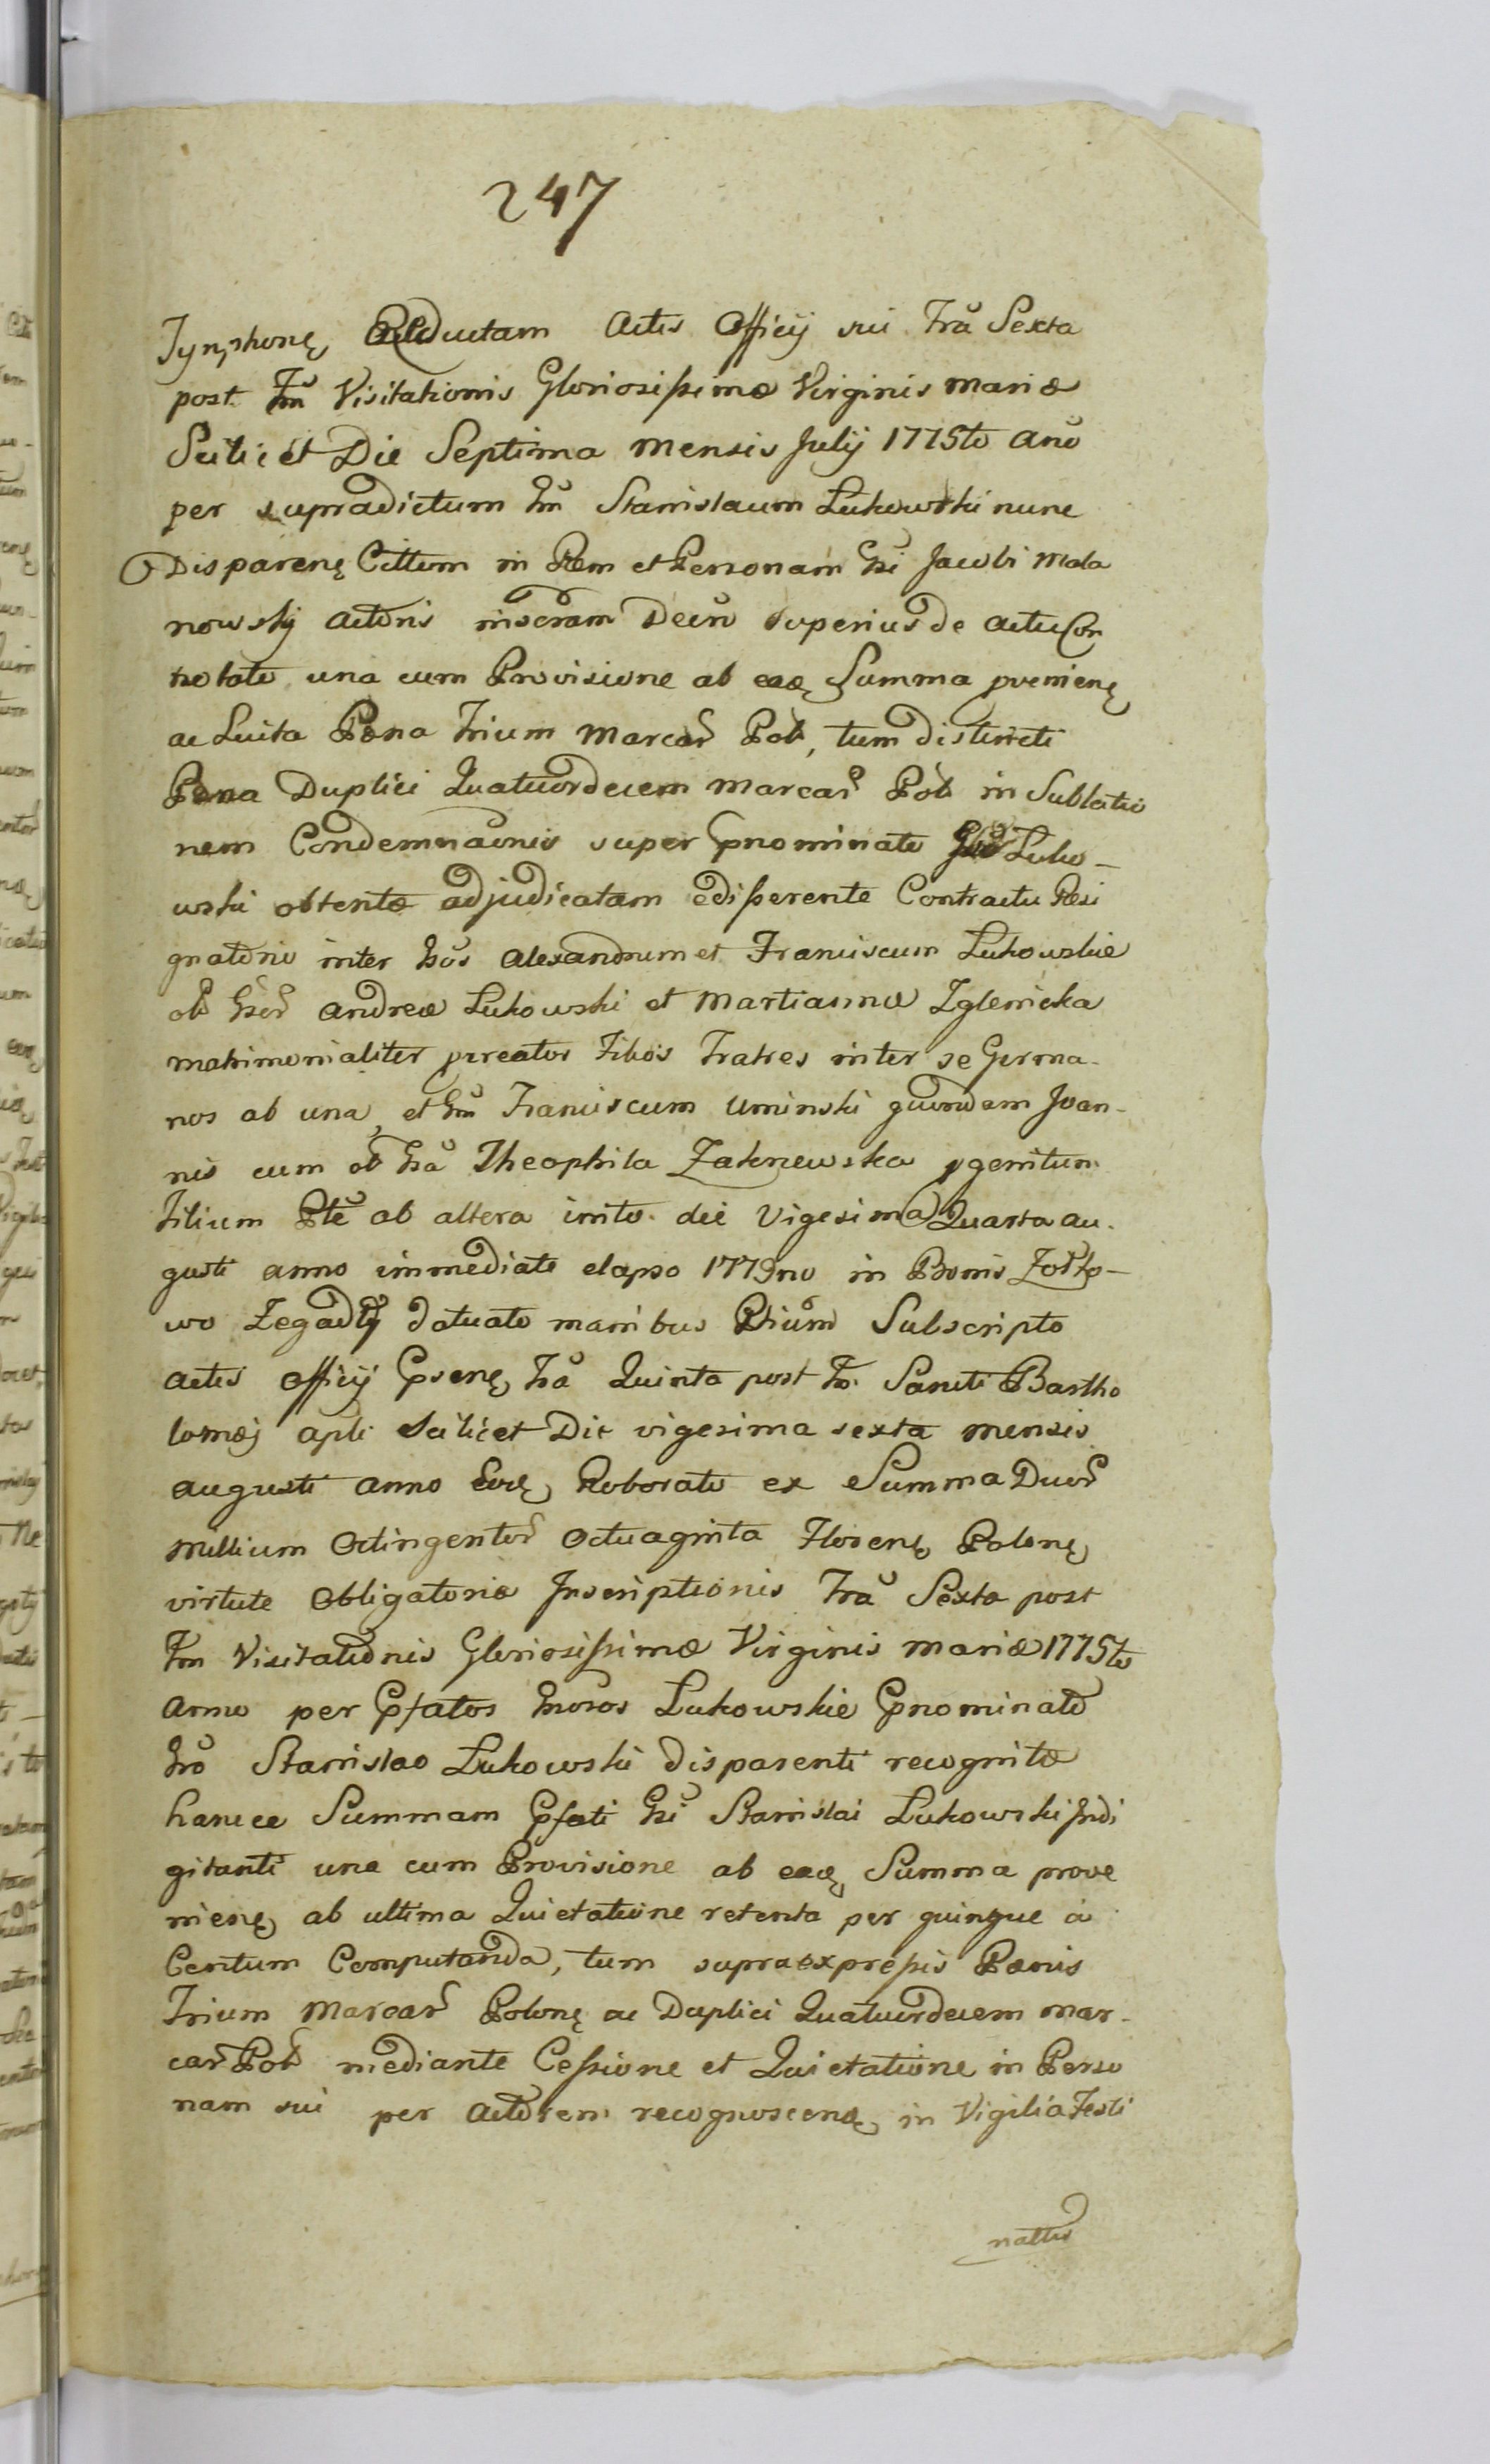 247
Tynphonę Adductam Actis Officij sui Fra Sexta
post Fm Visitationis Gloriosissimæ Virginis Mariæ
Scilicet Die Septima Mensis Julij 1775to Ano
per supradictum Gm Stanislaum Lukowski nunc
Disparenę Cittum in Rem et Personam Gsi Jacobi Mala
nowskij Actoris inscram Decro superius de actu Con
notato una cum Provisione ab eaę Summa pvenienę
ac Luita Pæna Trium Marcar Pol, tum distincti
Pæna Duplici Quatuordecem Marcar Pol in Sublatio
nem Condemnaonis super Gpnominato Gso Luko-
wski obtentæ adjudicatam edisserente Contractu Resi
gnatorio inter Gsos Alexandrum et Franciscum Lukowskie
ol Gsor Andreæ Lukowski et Martiannæ Zglenicka
matrimonialiter pcreatos Filios Fratres inter se Germa-
nos ab una, et Gm Franciscum Uminski quondam Joan-
nis cum ol Gsa Theophila Zakrzewska pgenitum
Filium Pte ab altera inito die Vigesima Quarta Au-
gusti anno immediate elapso 1779no in Bonis Zołto-
wo Zegadły datuato manibus Ptium Subscripto
Actis Officij Gpsenę Fra Quinta post Fm Sancti Bartho
lomæj Apli Scilicet Die vigesima sexta mensis
Augusti anno Eoę Roborato ex Summa Duor
Millium Octingentor Octuaginta Florenę Polonę
virtute Obligatoriæ Inscriptionis Fra Sexta post
Fm Visitationis Gloriosissimæ Virginis Mariæ 1775to
Anno per Gpfatos Gnosos Lukowskie Gpnominato
Gso Stanislao Lukowski disparenti recognitæ
hancce Summam Gpfati Gsi Stanislai Lukowski Indi
gitanti una cum Provisione ab eaę Summa prove
nienę ab ultima Quietatione retenta per quinque a
Centum Computanda, tum supraexpressis Pænis
Trium Marcar Polonę ac Duplici Quatuordecem Mar-
car Pol mediante Cessione et Quietatione in Perso
nam sui per Actorem recognoscenę in Vigilia Festi
natti